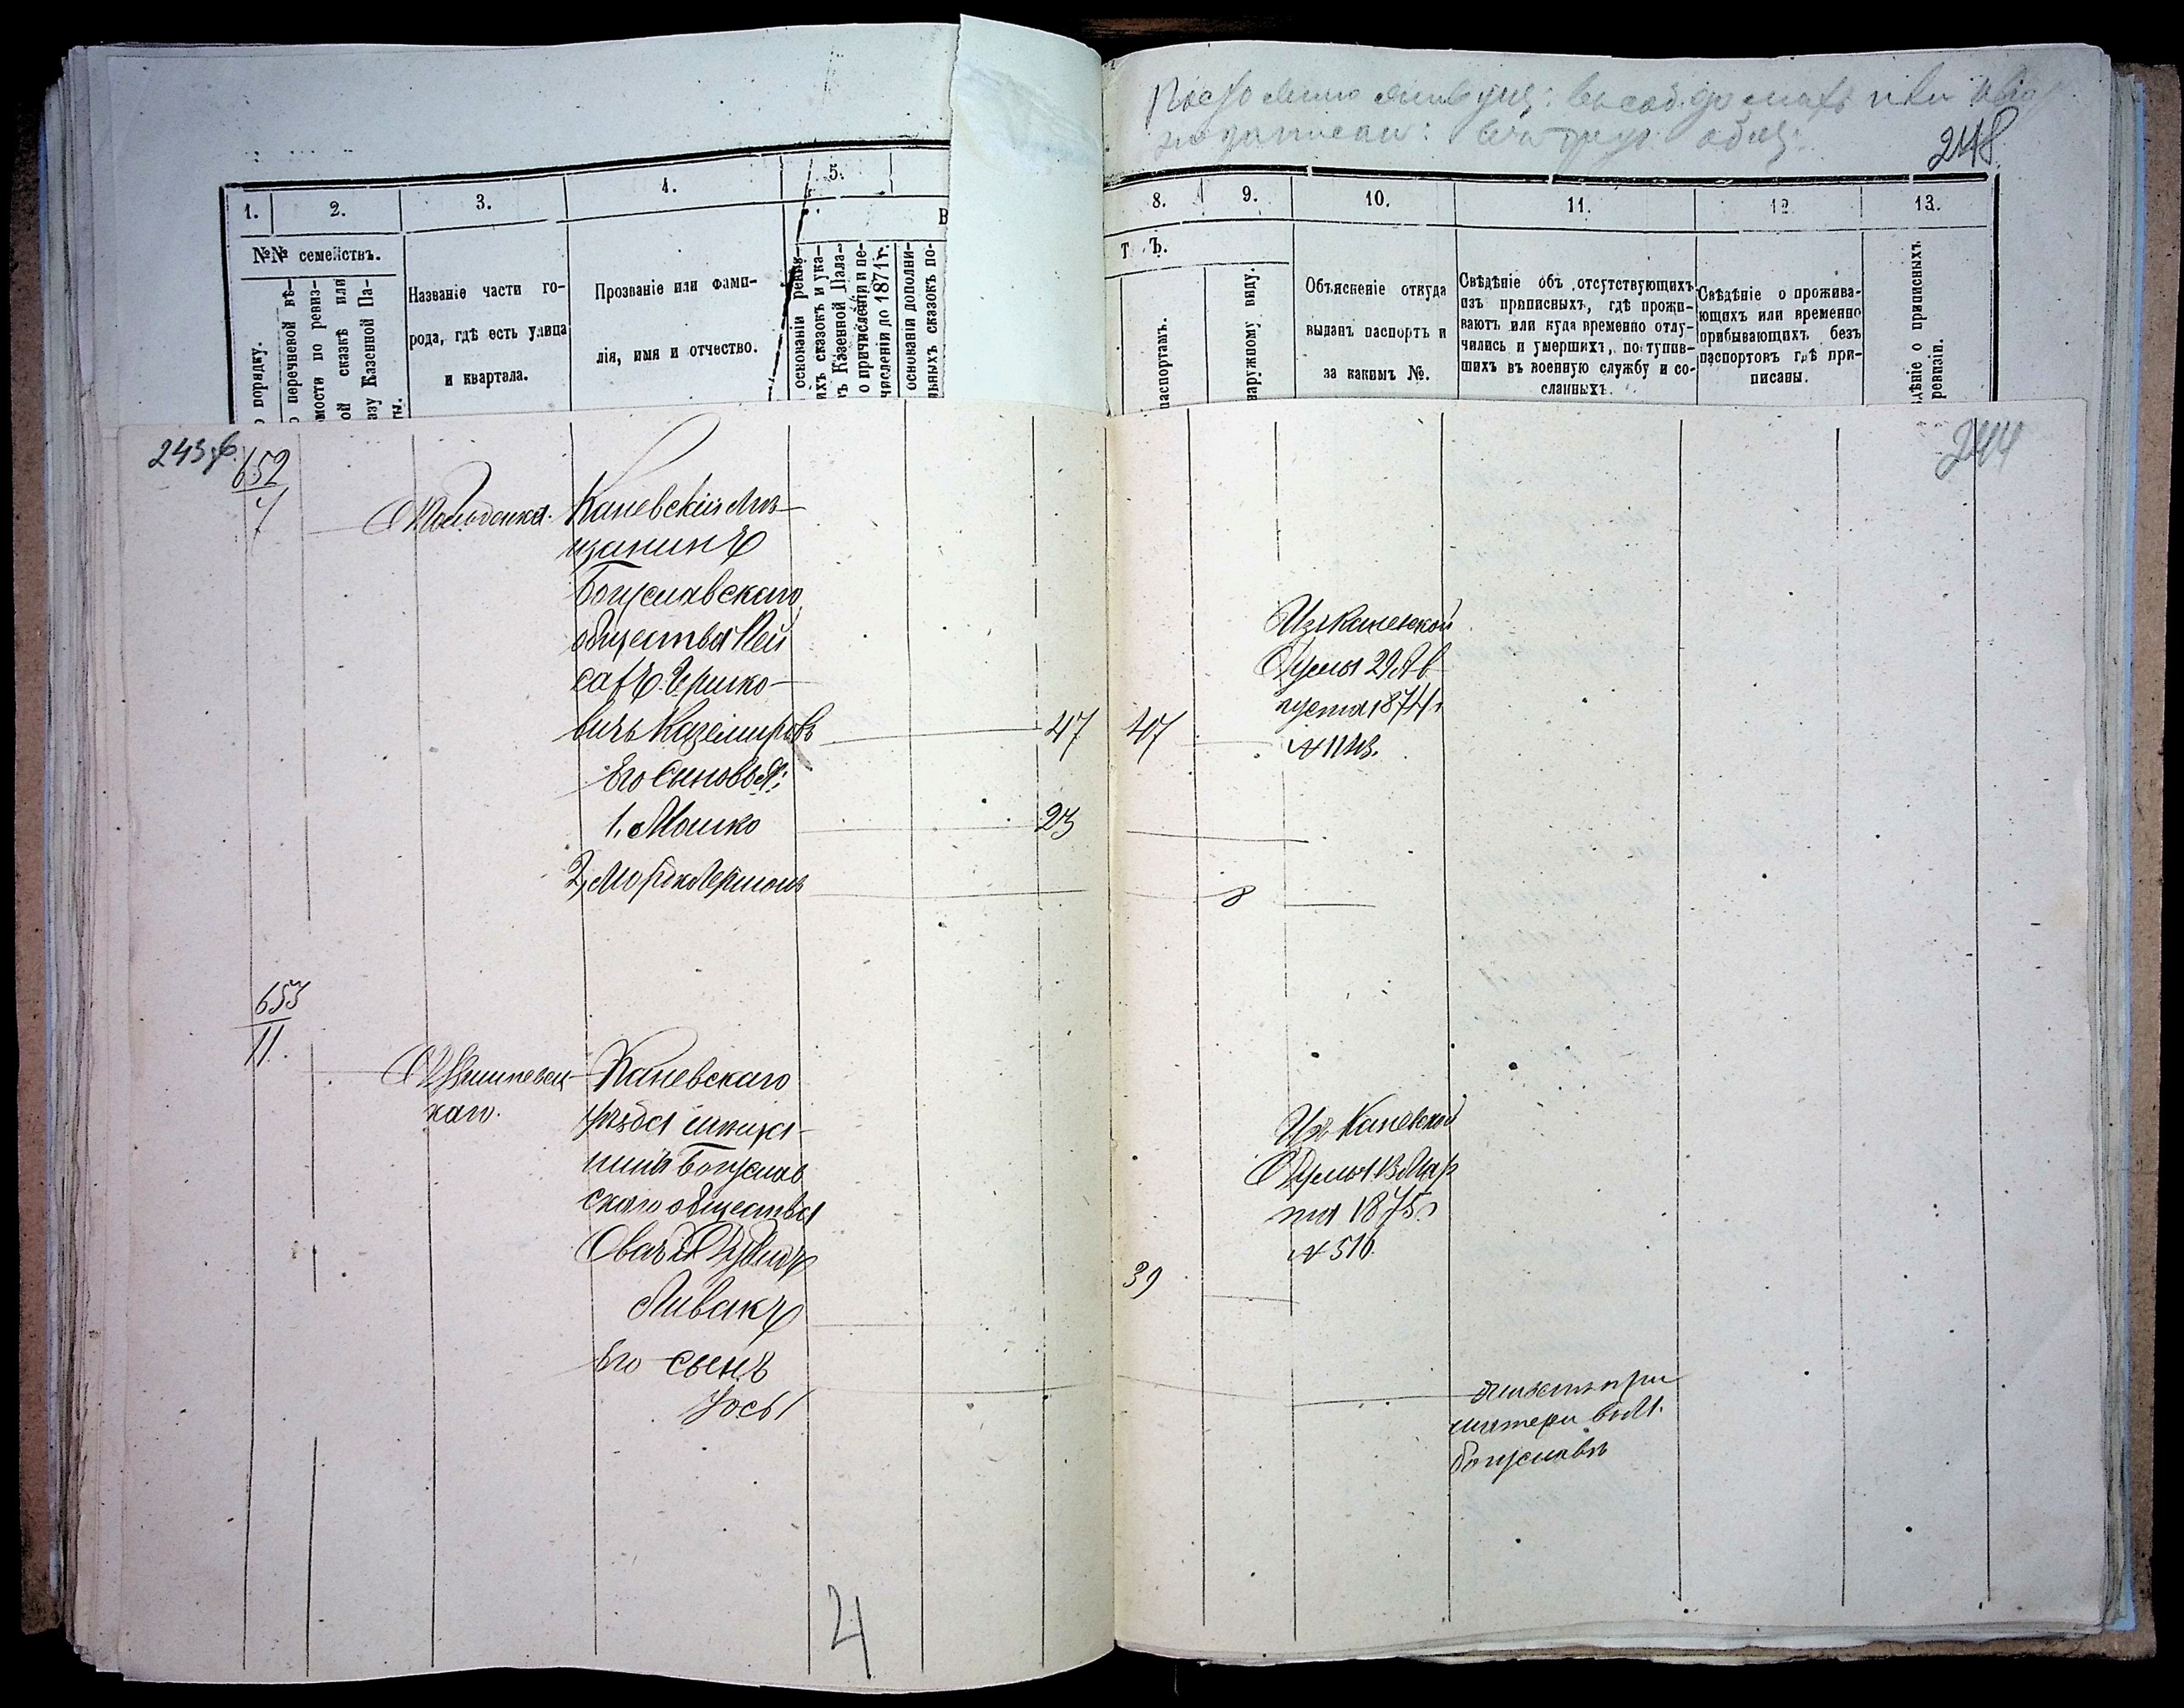 248
1. 2. 3. 4. 5.
8. 9. 10. 11. 12. 13.
№№ семействъ.
порядку.
перечневой вѣ-
мости по ревиз-
ой сказкѣ или
азу Казенной Па-
ты.
Названіе части го-
рода, гдѣ есть улица
и квартала.
Прозваніе или фами-
лія, имя и отчество.
В
основаніи ревиз-
ихъ сказокъ и ука-
ъ Казенной Пала-
о причисленіи и пе-
численіи до 1871 г.
основаніи дополни-
льныхъ сказокъ по-
т ъ.
паспортамъ.
наружному виду.
Объясненіе откуда
выданъ паспортъ и
за какимъ №.
Свѣдѣніе объ отсутствующихъ
изъ приписныхъ, гдѣ прожи-
ваютъ или куда временно отлу-
чились и умершихъ, поступив-
шихъ въ военную службу и со-
сланныхъ.
Свѣдѣніе о прожива-
ющихъ или временно
прибывающихъ безъ
паспортовъ гдѣ при-
писаны.
дѣніе о приписныхъ
ревизіи.
244
652
7
Каневскій мѣ-
щанинъ
Богуславскаго
общества Лей
Его сыновья:
1, Мошко
2, Мордко Лермонъ
47 47
23
8
Изъ Каневской
Думы 29 Ав
густа 1874 г
№ 1143.
653
11.
Каневскаго
уѣзда мѣща-
нинъ Богуслав
скаго общества
Ливакъ
Его сынъ
Іось 1
39
Изъ Каневской
Думы 13 Мар
та 1875 г
№ 516.
живетъ при
матери въ М.
Богуславѣ
4